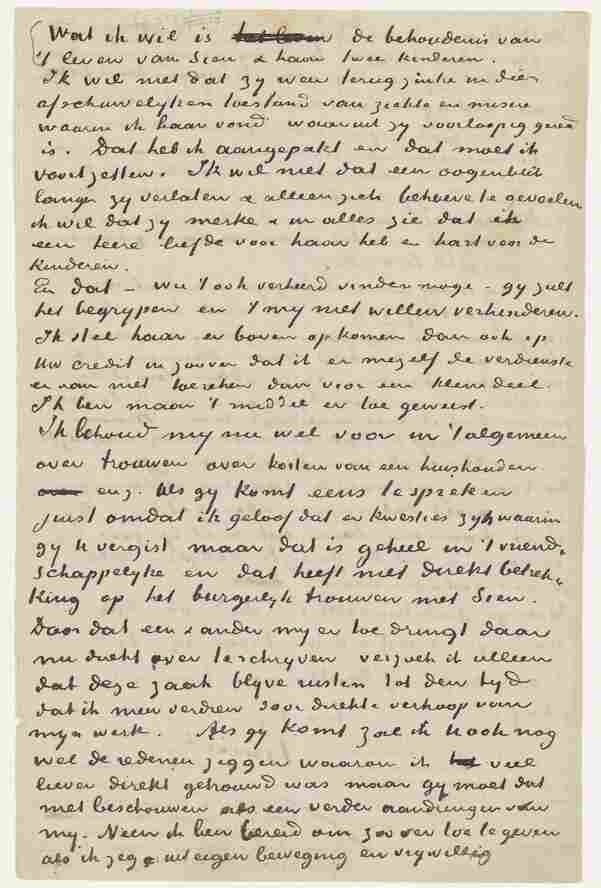 Wat ik wil is het leven de behoudenis van
't leven van Sien & haar twee kinderen.
Ik wil niet dat zy weer terug zinke in dien
afschuwelyken toestand van ziekte en misere
waarin ik haar vond waaruit zy voorloopig gered
is. Dat heb ik aangepakt en dat moet ik
voortzetten. Ik wil niet dat een oogenblik
langer zy verlaten & alleen zich behoeve te gevoelen
ik wil dat zy merke & in alles zie dat ik
een teere liefde voor haar heb en hart voor de
kinderen.
En dat – wie 't ook verkeerd vinden moge – gy zult
het begrypen en 't my niet willen verhinderen.
Ik stel haar er boven op komen dan ook op
Uw credit in zoover dat ik er mezelf de verdienste
er van niet toereken dan voor een klein deel.
Ik ben maar 't middel er toe geweest.
Ik behoud my nu wel voor in 't algemeen
over trouwen over kosten van een huishouden
over enz. als gy komt eens te spreken
juist omdat ik geloof dat er kwesties zyn waarin
gy U vergist maar dat is geheel in 't vriend-
schappelyke en dat heeft niet direkt betrek-
king op het burgerlyk trouwen met Sien.
Daar dat een & ander my er toe dringt daar
nu direkt over te schryven verzoek ik alleen
dat deze zaak blyve rusten tot den tyd
dat ik meer verdien door direkte verkoop van
myn werk. Als gy komt zal ik U ook nog
wel de redenen zeggen waarom ik veel
liever direkt getrouwd was maar gy moet dat
niet beschouwen als een verder aandringen van
my. Neen ik ben bereid om zoover toe te geven
als ik zeg uit eigen beweging en vrywillig